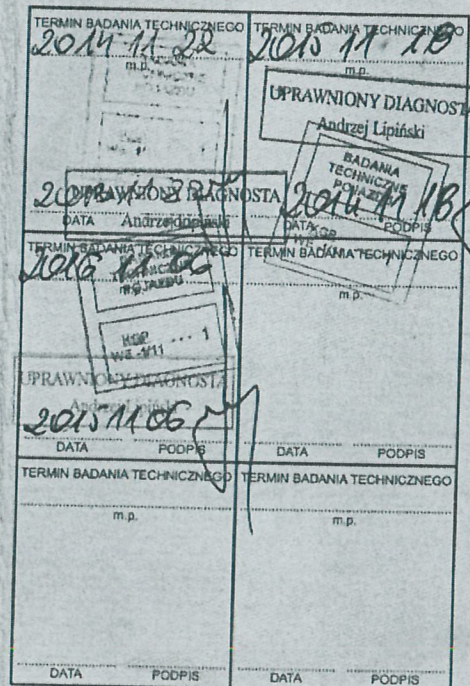 TERMIN BADANIA TECHNICZNEGO
2014 11 22
m.p.
UPRAWNIONY DIAGNOSTA
Andrzej Lipiński
DATA
TERMIN BADANIA TECHNICZNEGO
2015 11 18
m.p.
UPRAWNIONY DIAGNOSTA
Andrzej Lipiński
BADANIA
TECHNICZNE
POJAZDU
2014 11 18
DATA PODPIS
TERMIN BADANIA TECHNICZNEGO
2016 11 06
POJAZDU
1
UPRAWNIONY DIAGNOSTA
Andrzej Lipiński
2015 11 06
DATA PODPIS
TERMIN BADANIA TECHNICZNEGO
m.p.
DATA PODPIS
TERMIN BADANIA TECHNICZNEGO
m.p.
DATA PODPIS
TERMIN BADANIA TECHNICZNEGO
m.p.
DATA PODPIS